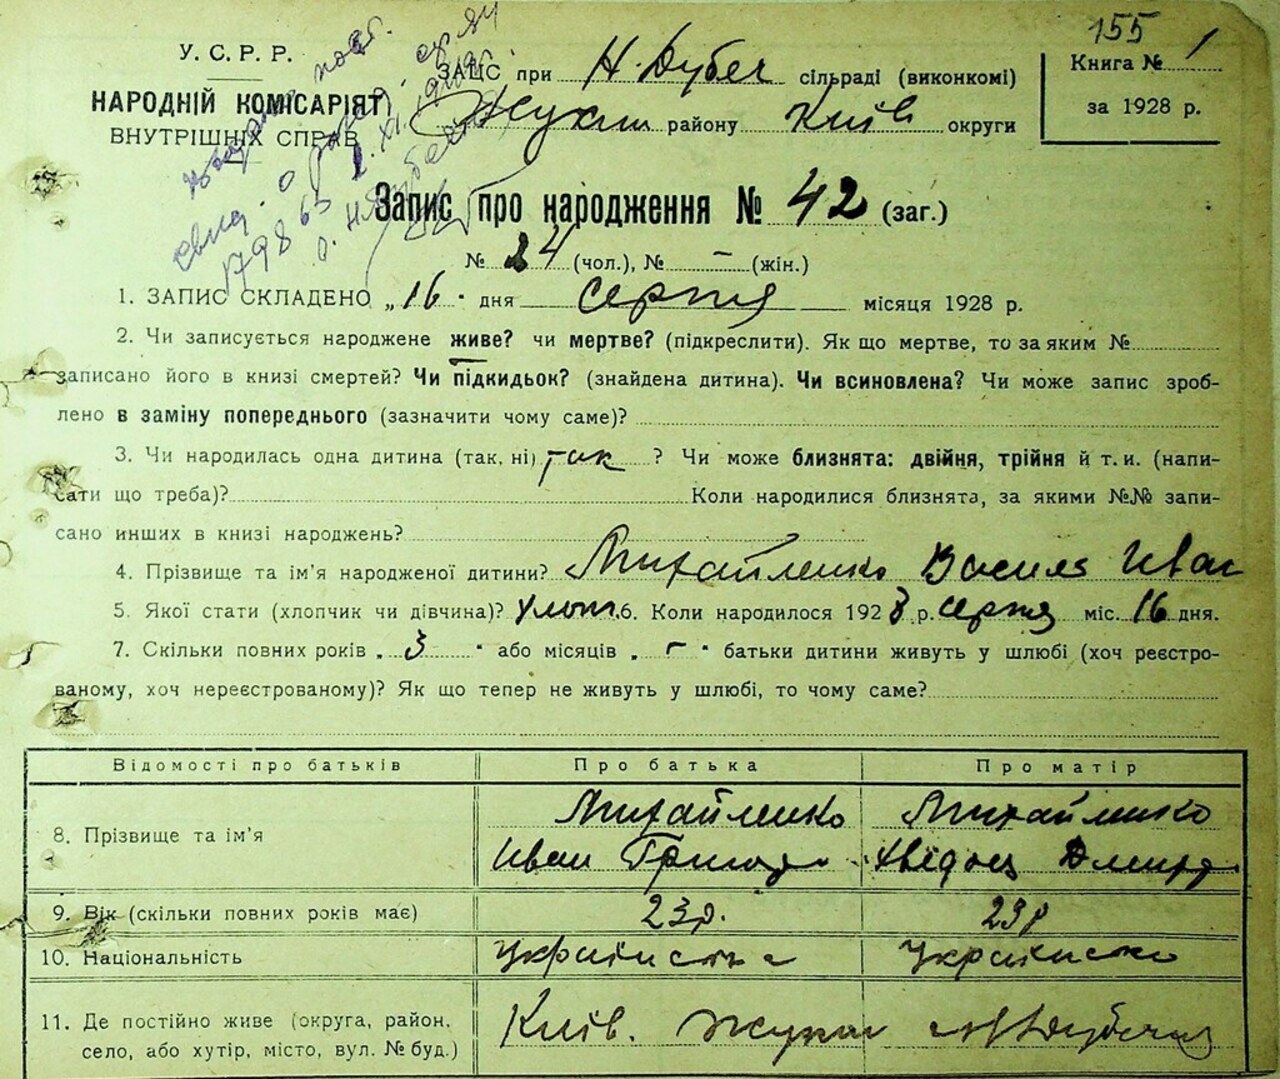 155
У. С. Р. Р.
НАРОДНІЙ КОМІСАРІЯТ
ВНУТРІШНІХ СПРАВ
ЗАЦС при Н. Дубеч сільраді (виконкомі)
Жукин району Київ округи
Книга № 1
за 1928 р.
Запис про народження № 42 (заг.)
№ 24 (чол.), № – (жін.)
1. ЗАПИС СКЛАДЕНО „16" дня серпня місяця 1928 р.
2. Чи записується народжене живе? чи мертве? (підкреслити). Як що мертве, то за яким №
записано його в книзі смертей? Чи підкидьок? (знайдена дитина). Чи всиновлена? Чи може запис зроб-
лено в заміну попереднього (зазначити чому саме)?
3. Чи народилась одна дитина (так, ні) так ? Чи може близнята: двійня, трійня й т. и. (напи-
сати що треба)? Коли народилися близнята, за якими №№ запи-
сано инших в книзі народжень?
4. Прізвище та ім'я народженої дитини? Михайленко Василь Иван
5. Якої стати (хлопчик чи дівчина)? хлоп. 6. Коли народилося 1928 р. серпня міс. 16 дня.
7. Скільки повних років „ 3 " або місяців „ – " батьки дитини живуть у шлюбі (хоч реєстро-
ваному, хоч нереєстрованому)? Як що тепер не живуть у шлюбі, то чому саме?
Відомості про батьків Про батька Про матір
8. Прізвище та ім'я Михайленко Михайленко
Иван Григор
9. Вік (скільки повних років має) 23 р. 23 р
10. Національність Українська Українка
11. Де постійно живе (округа, район, Київ. Жукин
село, або хутір, місто, вул. № буд.)